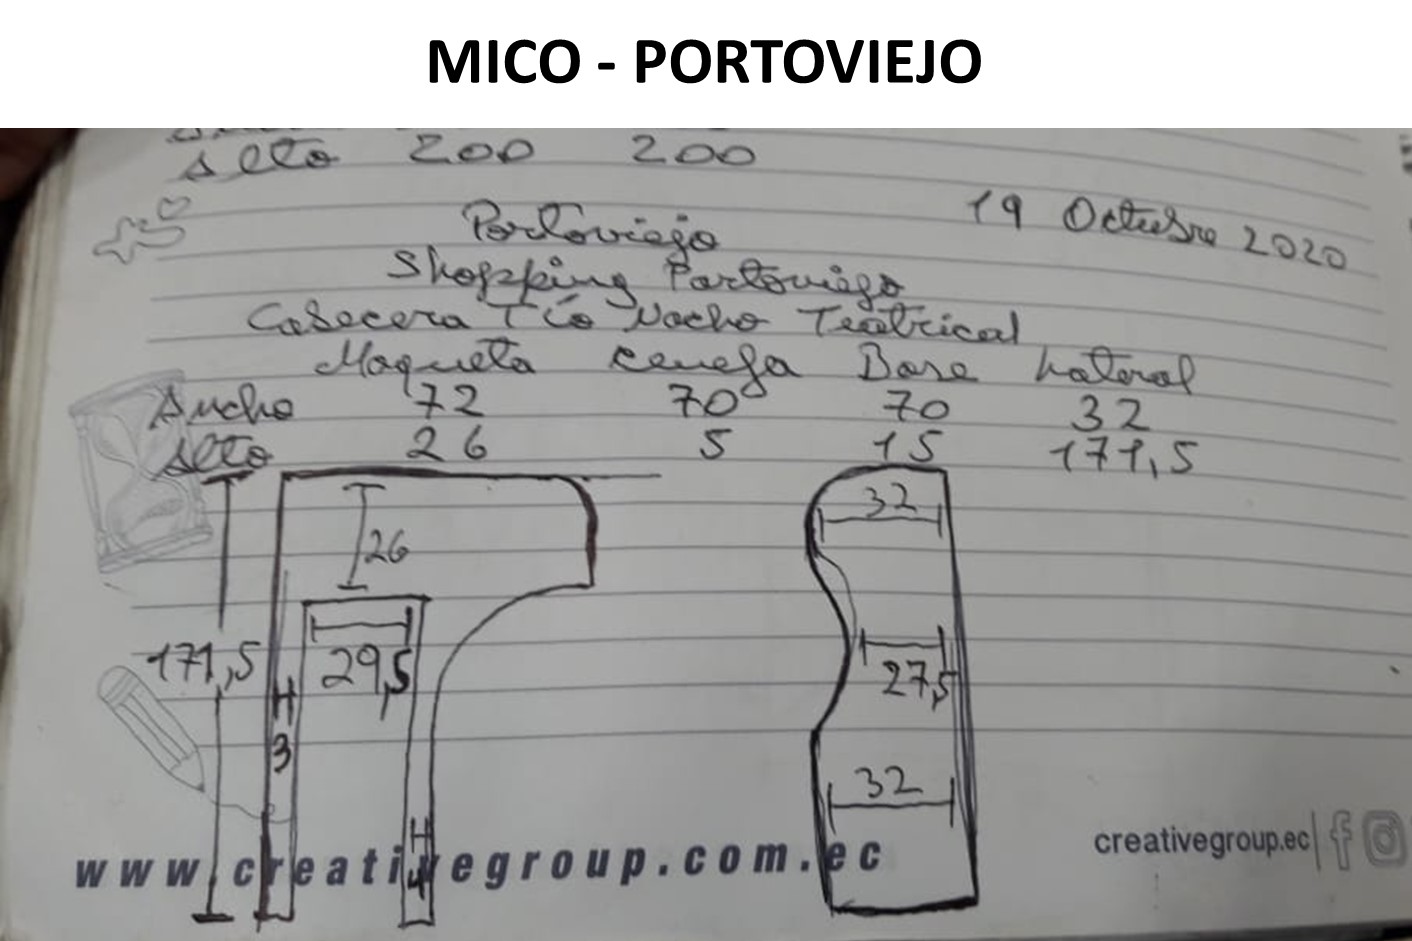 MICO - PORTOVIEJO
Alto 200 200
19 Octubre 2020
Portoviejo
Shopping Portoviejo
Cabecera Tío Nacho Teatrical
Maqueta Cenefa Base Lateral
Ancho 72 70 70 32
Alto 26 5 15 171,5
32
26
171,5
29,5
27,5
3
32
4
www.creativegroup.com.ec
creativegroup.ec